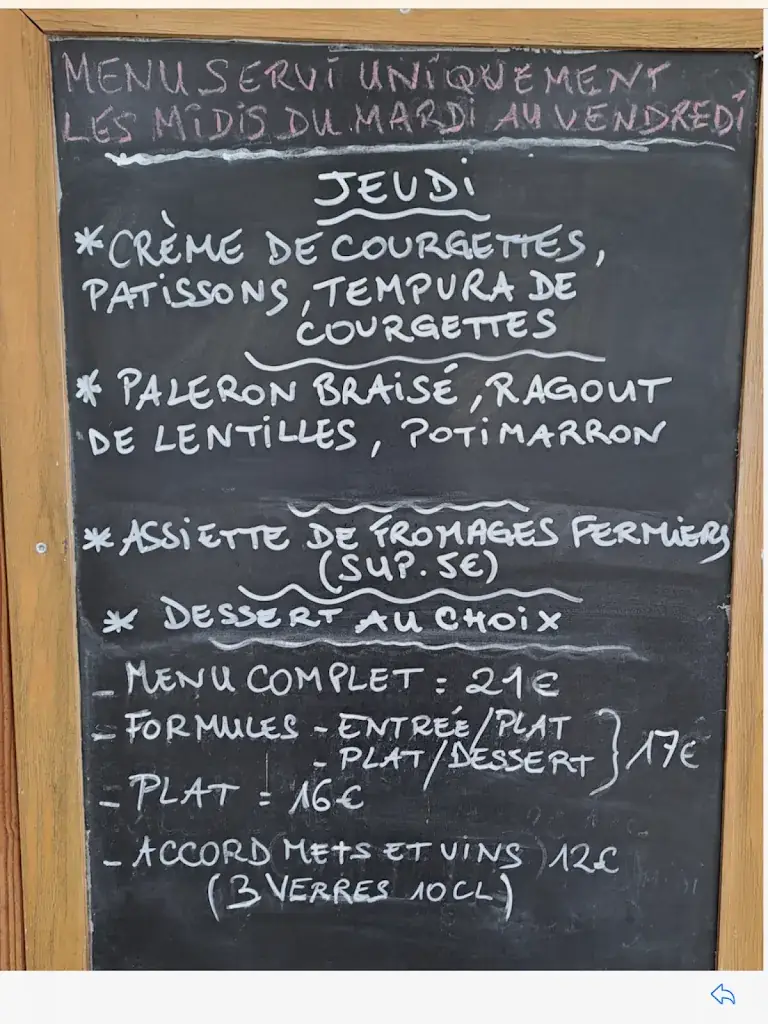 MENU SERVI UNIQUEMENT
LES MIDIS DU MARDI AU VENDREDI
JEUDI
* CRÈME DE COURGETTES,
PATISSONS, TEMPURA DE
COURGETTES
* PALERON BRAISÉ, RAGOUT
DE LENTILLES, POTIMARRON
* ASSIETTE DE FROMAGES FERMIERS
(SUP. 5€)
* DESSERT AU CHOIX
- MENU COMPLET = 21€
- FORMULES - ENTRÉE/PLAT
- PLAT/DESSERT } 17€
- PLAT = 16€
- ACCORD METS ET VINS 12€
(3 VERRES 10CL)